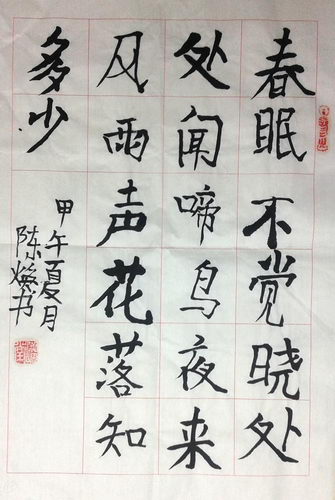 春眠不觉晓处
处闻啼鸟夜来
风雨声花落知
多少
甲午夏月
陈焕书